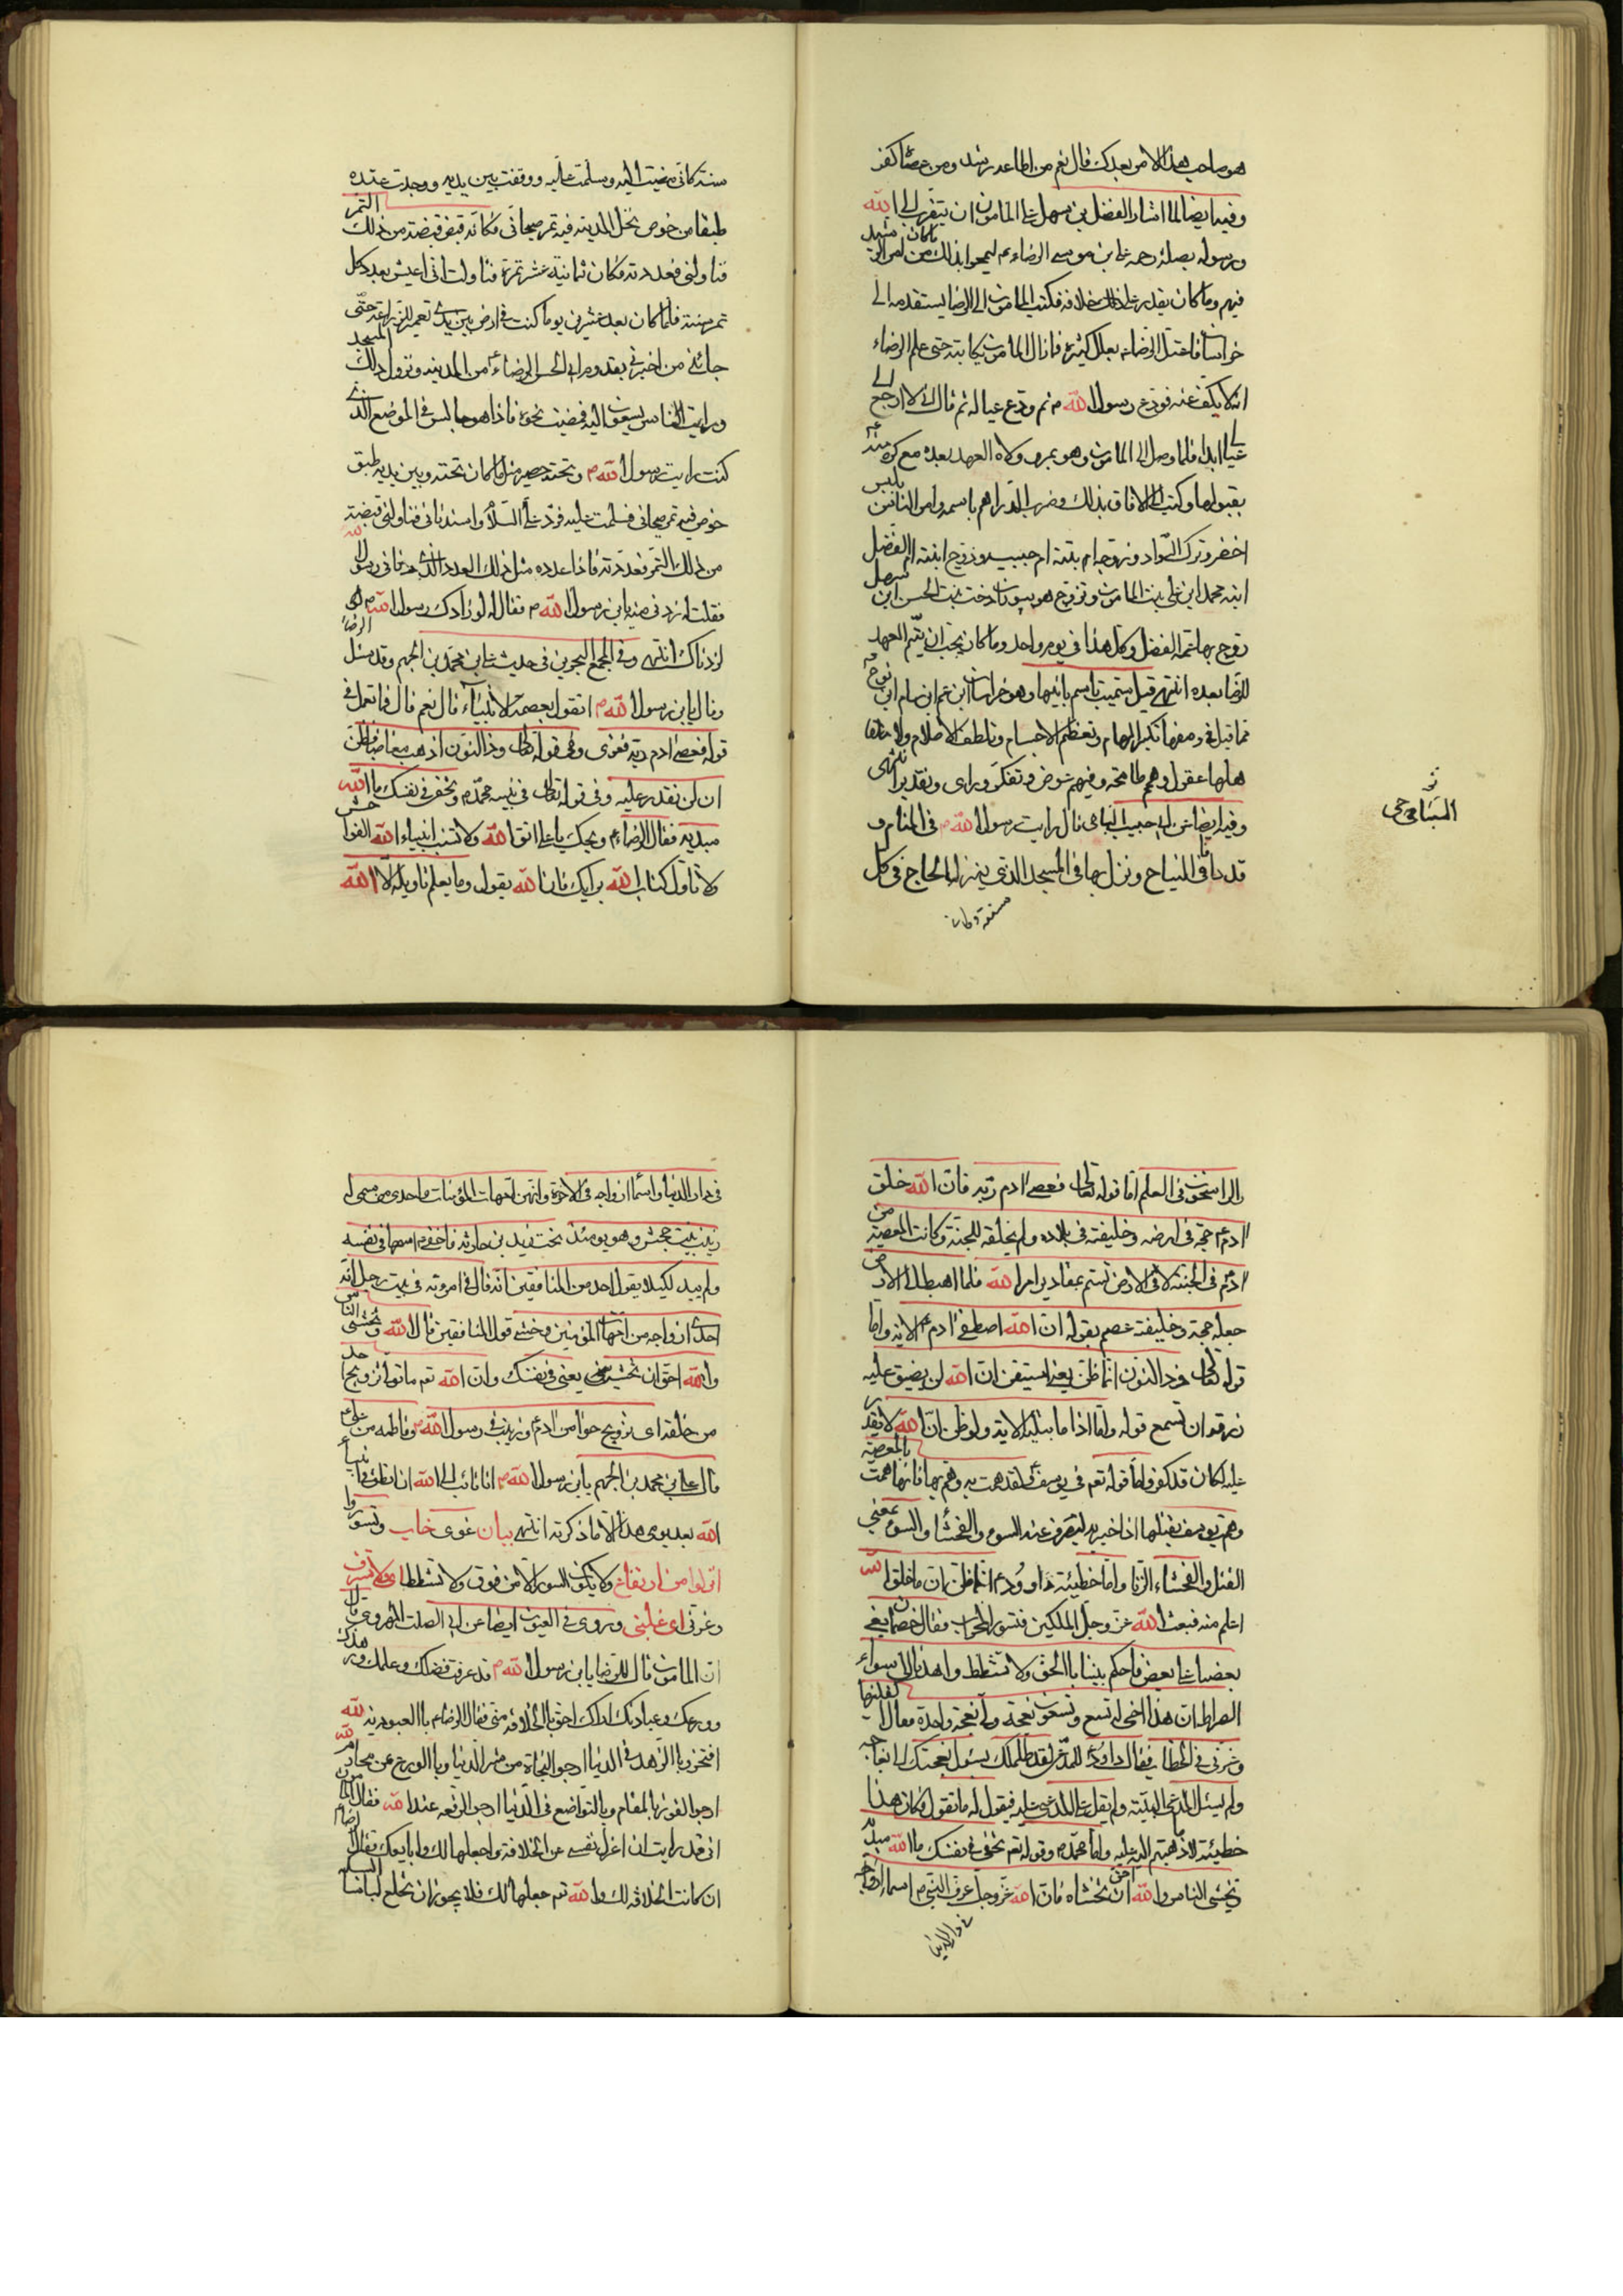 هو صاحب هذا الامر بعدك قال نعم من اطاعه رشد ومن عصاه كفر
وفيه ايضا لما اشار الفضل بن سهل على المامون ان يتقرب الى الله
ورسوله بصلة رحمه على بن موسى الرضاء ع ليمحو بذلك ما كان من امر الرشيد
فيهم وما كان يقدر على خلافه فكتب المامون الى الرضا يستقدمه الى
خراسان فاعتل الرضاء بعلل كثيرة فما زال المامون يكاتبه حتى علم الرضاء
انه لا يكف عنه فودع رسول الله م ثم ودع عياله ثم قال انى لا ارجع الى
عيالى ابدا فلما وصل الى المامون وهو بمرو ولاه العهد بعده مع كره منه
بقبولها وكتب الى الافاق بذلك وضرب الدراهم باسمه وامر الناس بلبس
اخضر وترك السواد وزوجه ابنته ام حبيب وزوج ابنته ام الفضل
ابنه محمد ابن على بنت المامون وتزوج هو ببوران دخت بنت الحسن ابن سهل
زوج بها عمه الفضل وكل هذا فى يوم واحد وما كان يحب ان يتم العهد
للرضا بعده انتهى قيل سميت باسم بانيها وهو خراسان ابن عم ابن سام ابن نوح ع
فما قيل فى وصفها تكبر البهام وتعظم الاجسام وتلطف الاحلام
هلها عقول وهمم طامحة وفيهم غوص وتفكر وراى وتقدير انتهى
وفيه ايضا عن ابى حبيب النباجى قال رايت رسول الله م فى المنام و
قد وافى النباج ونزل بها فى المسجد الذى ينزله الحاج فى كل
سنة وكان
سنة كانى مضيت اليه وسلمت عليه ووقفت بين يديه ووجدت عنده
طبقا من خوص نخل المدينه فيه تمر صيحانى فكانه قبض قبضة من ذلك التمر
فناولنى فعددته فكان ثمانية عشر تمرة فتاولت انى اعيش بعدد كل
تمرة سنة فلما كان بعد عشرين يوما كنت فى ارض بين يدى تعمر للزراعة حتى
جائنى من اخبرنى بقدوم ابى الحسن الرضاء ع من المدينه ونزوله ذلك المسجد
ورايت الناس يسعون اليه فمضيت نحوه فاذا هو جالس فى الموضع الذى
كنت رايت رسول الله م وتحته حصير مثل ما كان تحته وبين يديه طبق
خوص فيه تمر صيحانى فسلمت عليه فرد على السلام واستدنانى فناولنى قبضة
من ذلك التمر فعددته فاذا عدده مثل ذلك العدد الذى ناولنى رسول الله
فقلت له زدنى منه يا بن رسول الله م فقال لو زادك رسول الله م
لزدناك انتهى وفى المجمع البحرين فى حديث على بن محمد بن الجهم وقد سئل الرضا
وقال يا بن رسول الله م اتقول بعصمة الانبياء قال نعم قال فما تعمل فى
قوله فعصى ادم ربه فغوى وفى قوله تعالى وذا النون اذ ذهب مغاضبا فظن
ان لن نقدر عليه وفى قوله تعالى فى نبيه محمد م وتخفى فى نفسك ما الله
مبديه فقال الرضاء ع ويحك يا على اتق الله ولا تنسب انبياء الله الفواحش
ولا تاول كتاب الله برايك فان الله يقول وما يعلم تاويله الا الله
والراسخون فى العلم اما قوله تعالى فعصى ادم ربه فان الله خلق
ادم ع حجة فى ارضه وخليفته فى بلاده ولم يخلقه للجنة وكانت المعصية من
ادم فى الجنة لا فى الارض لتتم مقادير امر الله فلما اهبط الى الارض
جعله حجة وخليفة عصم بقوله ان الله اصطفى ادم الاية واما
قوله تعالى وذا النون انما ظن يعنى استيقن ان الله لن يضيق عليه
رزقه ان تسمع قوله واما اذا ما ابتليه الاية ولو ظن ان الله لا يقدر
عليه لكان قد كفر واما قوله تعم فى يوسف لقد همت به وهم بها فانها همت بالمعصية
وهم يوسف بقتلها ليصرف عنه السوء والفحشاء والسوء يعنى
القتل والفحشاء الزنا واما خطيئة داود ع انما ظن ان ما خلق الله
اعلم منه فبعث الله عز وجل الملكين فتسور المحراب فقال خصمان بغى
بعضنا على بعض فاحكم بيننا بالحق ولا تشطط واهدنا الى سواء
الصراط ان هذا اخى له تسع وتسعون نعجة ولى نعجة واحدة فقال اكفلنيها
وعزنى فى الخطاب فقال داود ع لقد ظلمك بسئوال نعجتك الى نعاجه
ولم يسئل المدعى البينة ولم يقل على المدعى عليه فيقول له ما تقول فكان هذا
خطيئة واما محمد م وقوله تعم تخفى فى نفسك ما الله مبديه
وتخشى الناس والله احق ان تخشاه فان الله عز وجل عرف النبى م اسماء ازواجه
فى دار الدنيا
فى دار الدنيا واسماء ازواجه فى الاخرة وانهن امهات المؤمنات واحدى من سمى له
زينب بنت جحش وهو يومئذ تحت زيد بن حارثه فاخفى م اسمها فى نفسه
ولم يبد لكيلا يقول احد من المنافقين انه قال فى امرءة فى بيت رجل انه
احدى ازواجه من امهات المؤمنين وخشى قول المنافقين قال الله وتخشى الناس
والله احق ان تخشيه يعنى فى نفسك وان الله تعم ما تولى تزويج احد
من خلقه اى تزويج حوا من ادم ع وزينب فى رسول الله م وفاطمه من على ع
قال على بن محمد بن الجهم يا بن رسول الله م انا تائب الى الله ان انطق فى انبياء
الله بعد يومى هذا الا ما ذكرته انتهى بيان غوى خاب وتسوروا
اتوا من ارتفاع ولا يكون التسور الا من فوق ولا تشطط اى لا تسرف
وعزنى اى غلبنى وروى فى العيون ايضا عن ابى الصلت الهروى قال
ان المامون قال للرضا يا بن رسول الله م قد عرفت فضلك وعلمك وزهدك
وورعك وعبادتك اراك احق بالخلافة منى فقال الرضا ع بالعبودية لله
افتخر وبالزهد فى الدنيا ارجو النجاة من شر الدنيا وبالورع عن محارم الله
ارجو الفوز بالمقام وبالتواضع فى الدنيا ارجو الرفعه عند الله فقال المامون
انى قد رايت ان اعزل نفسى عن الخلافة واجعلها لك وابايعك فقال الرضا ع
ان كانت الخلافة لك والله تعم جعلها لك فلا يجوز ان تخلع لباسا